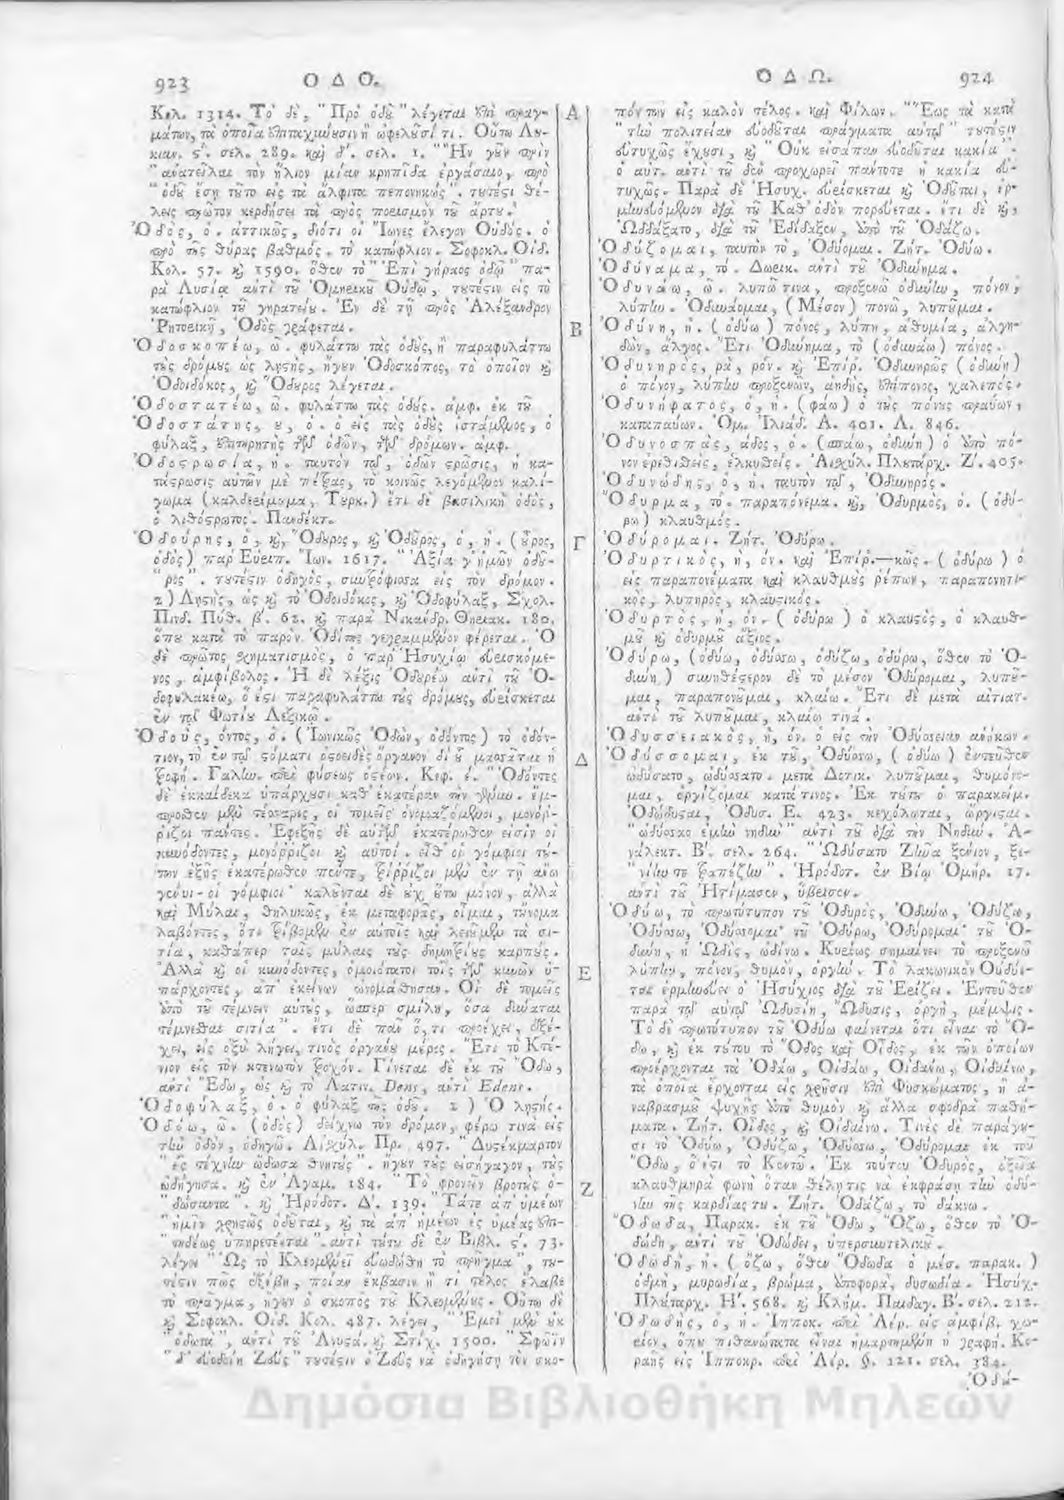 923 Ο Δ Ο.
Κολ. 1314. Τὸ δὲ, "Πρὸ ὁδοῦ" λέγεται ἐπὶ πραγ-
μάτων, τὰ ὁποῖα ἐπιταχύνουσιν ἢ ὠφελοῦσί τι. Οὕτω Λυ-
κιαν. ς΄. σελ. 289. καὶ δ΄. σελ. 1. "Ἢν γοῦν πρὶν
"ἀνατεῖλαι τὸν ἥλιον μίαν κρηπῖδα ἐργάσαιο, πρὸ
"ὁδοῦ ἔσῃ τοῦτο εἰς τὰ ἄλφιτα πεπονηκώς". τουτέστι θέ-
λεις πρῶτον κερδήσει τὰ πρὸς πορισμὸν τοῦ ἄρτου.
Ὀδὸς, ὁ. ἀττικῶς, διότι οἱ Ἴωνες ἔλεγον Οὐδός. ὁ
πρὸ τῆς θύρας βαθμός. τὸ κατώφλιον. Σοφοκλ. Οἰδ.
Κολ. 57. καὶ 1590. ὅθεν τὸ "Ἐπὶ γήραος ὀδῷ" πα-
ρὰ Λυσίᾳ ἀντὶ τοῦ Ὁμηρικοῦ Οὐδῷ, τουτέστιν εἰς τὸ
κατώφλιον τοῦ γηρατείου. Ἐν δὲ τῇ πρὸς Ἀλέξανδρον
Ῥητορικῇ, Ὁδὸς γράφεται.
Ὁδοσκοπέω, ῶ. φυλάττω τὰς ὁδοὺς, ἢ παραφυλάττω
τοὺς δρόμους ὡς λῃστὴς, ἤγουν Ὁδοσκόπος, τὸ ὁποῖον καὶ
Ὁδοιδόκος, καὶ Ὅδουρος λέγεται.
Ὁδοστατέω, ῶ. φυλάττω τὰς ὁδούς. ἀμφ. ἐκ τοῦ
Ὁδοστάτης, ου, ὁ. ὁ εἰς τὰς ὁδοὺς ἱστάμενος, ὁ
φύλαξ, ἐπιτηρητὴς τῶν ὁδῶν, τῶν δρόμων. ἀμφ.
Ὁδοστρωσία, ἡ. ταυτὸν τῷ, ὁδῶν στρῶσις, ἡ κα-
τάστρωσις αὐτῶν μὲ πέτρας, τὸ κοινῶς λεγόμενον καλί-
γωμα (καλδερίμωμα, Τουρκ.) ἔτι δὲ βασιλικὴ ὁδὸς,
ὁ λιθόστρωτος. Πανδέκτ.
Ὁδούρης, ὁ, καὶ, Ὅδουρος, καὶ Ὁδοῦρος, ὁ, ἡ. (οὖρος,
ὁδὸς) παρ' Εὐριπ. Ἴων. 1617. "Ἀξία γ' ἡμῶν ὁδου-
"ρός". τουτέστιν ὁδηγὸς, συντρόφισσα εἰς τὸν δρόμον.
2) Λῃστὴς, ὡς καὶ τὸ Ὁδοιδόκος, καὶ Ὁδοφύλαξ, Σχολ.
Πινδ. Πυθ. β΄. 62. καὶ παρὰ Νικανδρ. Θηριακ. 180.
ὅπου κατὰ τὸ παρὸν Ὁδίτης γεγραμμένον φέρεται. Ὁ
δὲ πρῶτος σχηματισμὸς, ὁ παρ' Ἡσυχίῳ εὑρισκόμε-
νος, ἀμφίβολος. Ἡ δὲ λέξις Ὁδουρέω ἀντὶ τοῦ Ὁ-
δοφυλακέω, ὅ ἐστι παραφυλάττω τοὺς δρόμους, εὑρίσκεται
ἐν τῷ Φωτίου Λεξικῷ.
Ὀδοὺς, όντος, ὁ. (Ἰωνικῶς Ὀδὼν, ὀδόντος) τὸ ὀδόν-
τιον, τὸ ἐν τῷ στόματι ὀστοειδὲς ὄργανον δι' οὗ μασσᾶται ἡ
τροφή. Γαλην. περὶ φύσεως ὀστέων. Κεφ. έ. "Ὀδόντες
δὲ ἑκκαίδεκα ὑπάρχουσι καθ' ἑκατέραν τὴν γένυν. ἔμ-
προσθεν μὲν τέσσαρες, οἱ τομεῖς ὀνομαζόμενοι, μονόρ-
ριζοι πάντες. Ἐφεξῆς δὲ αὐτῶν ἑκατέρωθεν εἰσὶν οἱ
κυνόδοντες, μονόρριζοι καὶ αὐτοί. εἶθ' οἱ γόμφιοι τού-
των ἑξῆς ἑκατέρωθεν πέντε, τρίρριζοι μὲν ἐν τῇ ἄνω
γένυι - οἱ γόμφιοι· καλοῦνται δὲ οὐχ οὕτω μόνον, ἀλλὰ
καὶ Μύλαι, θηλυκῶς, ἐκ μεταφορᾶς, οἶμαι, τοὔνομα
λαβόντες, ὅτι τρίβομεν ἐν αὐτοῖς καὶ λειοῦμεν τὰ σι-
τία, καθάπερ ταῖς μύλαις τοὺς δημητρίους καρπούς.
Ἀλλὰ καὶ οἱ κυνόδοντες, ὁμοιότατοι τοῖς τῶν κυνῶν ὑ-
πάρχοντες, ἀπ' ἐκείνων ὠνομάσθησαν. Οἱ δὲ τομεῖς
ἀπὸ τοῦ τέμνειν αὐτοὺς, ὥσπερ σμίλη, ὅσα δύναται
τέμνεσθαι σιτία". ἔτι δὲ πᾶν ὅ,τι προέχει, ἐξέ-
χει, εἰς ὀξὺ λήγει, τινὸς ὀργάνου μέρος. Ἔτι τὸ Κτέ-
νιον εἰς τὸν κοινωτὸν τροχόν. Γίνεται δὲ ἐκ τοῦ Ὄδω,
ἀντὶ Ἔδω, ὡς καὶ τὸ Λατιν. Dens, ἀντὶ Edens.
Ὁδοφύλαξ, ὁ. ὁ φύλαξ τῆς ὁδοῦ. 2) Ὁ λῃστής.
Ὁδόω, ῶ. (ὁδὸς) δείχνω τὸν δρόμον, φέρω τινὰ εἰς
τὴν ὁδὸν, ὁδηγῶ. Αἰσχύλ. Πρ. 497. "Δυστέκμαρτον
"ἐς τέχνην ὥδωσα θνητούς". ἤγουν τοὺς εἰσήγαγον, τοὺς
ὡδήγησα. καὶ ἐν Ἀγαμ. 184. "Τὸ φρονεῖν βροτοὺς ὁ-
"δώσαντα". καὶ Ἡρόδοτ. Δ΄. 139. "Τάτε ἀπ' ὑμέων
"ἡμῖν χρηστῶς ὁδοῦται, καὶ τὰ ἀπ' ἡμέων ἐς ὑμέας ἐπι-
"τηδέως ὑπηρετέεται". ἀντὶ τούτου δὲ ἐν Βιβλ. ς΄. 73.
λέγει "Ὡς τὸ Κλεομένεϊ εὐωδώθη τὸ πρῆγμα", του-
τέστιν πῶς ἐξέβη, ποίαν ἔκβασιν ἢ τί τέλος ἔλαβε
τὸ πρᾶγμα, ἤγουν ὁ σκοπὸς τοῦ Κλεομένους. Οὕτω δὲ
καὶ Σοφοκλ. Οἰδ. Κολ. 487. λέγει, "Ἐμοὶ μὲν οὐκ
"ὁδωτά", ἀντὶ τοῦ Ἀνυστά. καὶ Στίχ. 1500. "Σφῷν
"δ' εὐοδοίη Ζεύς" τουτέστιν ὁ Ζεὺς νὰ ὁδηγήσῃ τὸν σκο-
Α
Β
Γ
Δ
Ε
Ζ
Ο Δ Ω. 924
πόν των εἰς καλὸν τέλος. καὶ Φίλων. "Ἕως τὰ κατὰ
"τὴν πολιτείαν εὐοδοῦται πράγματα αὐτῶν" τουτέστιν
εὐτυχῶς ἔχουσι, καὶ "Οὐκ εἰσάπαν εὐοδοῦται κακία".
ὁ αυτ. ἀντὶ τοῦ δὲν προχωρεῖ πάντοτε ἡ κακία εὐ-
τυχῶς. Παρὰ δὲ Ἡσυχ. εὑρίσκεται καὶ Ὁδοῦται, ἑρ-
μηνευόμενον διὰ τοῦ Καθ' ὁδὸν πορεύεται. ἔτι δὲ καὶ,
Ὠδδάξατο, διὰ τοῦ Ἐδίδαξεν, ἀπὸ τοῦ Ὀδάζω.
Ὀδύζομαι, ταυτὸν τὸ, Ὀδύομαι. Ζήτ. Ὀδύω.
Ὀδύναμα, τό. Δωρικ. ἀντὶ τοῦ Ὀδύνημα.
Ὀδυνάω, ῶ. λυπῶ τινα, προξενῶ ὀδύνην, πόνον,
λύπην. Ὀδυνάομαι, (Μέσον) πονῶ, λυποῦμαι.
Ὀδύνη, ἡ. (ὀδύω) πόνος, λύπη, ἀθυμία, ἀλγη-
δὼν, ἄλγος. Ἔτι Ὀδύνημα, τὸ (ὀδυνάω) πόνος.
Ὀδυνηρὸς, ρὰ, ρόν. καὶ Ἐπίρ. Ὀδυνηρῶς (ὀδύνη)
ὁ πόνον, λύπην προξενῶν, ἀηδὴς, ἐπίπονος, χαλεπός.
Ὀδυνήφατος, ὁ, ἡ. (φάω) ὁ τοὺς πόνους πραΰνων,
καταπαύων. Ὁμ. Ἰλιάδ. Λ. 401. Λ. 846.
Ὀδυνοσπὰς, άδος, ὁ. (σπάω, ὀδύνη) ὁ ἀπὸ πό-
νον ἐρεθισθεὶς, ἑλκυσθείς. Αἰσχύλ. Πλουτάρχ. Ζ΄. 405.
Ὀδυνώδης, ὁ, ἡ. ταυτὸν τῷ, Ὀδυνηρός.
Ὄδυρμα, τό. παραπόνεμα. καὶ, Ὀδυρμὸς, ὁ. (ὀδύ-
ρω) κλαυθμός.
Ὀδύρομαι. Ζήτ. Ὀδύρω.
Ὀδυρτικὸς, ἡ, όν. καὶ Ἐπίρ.—κῶς. (ὀδύρω) ὁ
εἰς παραπονέματα καὶ κλαυθμοὺς ῥέπων, παραπονητι-
κὸς, λυπηρὸς, κλαυστικός.
Ὀδυρτὸς, ἡ, όν. (ὀδύρω) ὁ κλαυστὸς, ὁ κλαυθ-
μοῦ καὶ ὀδυρμοῦ ἄξιος.
Ὀδύρω, (ὀδύω, ὀδύσσω, ὀδύζω, ὀδύρω, ὅθεν τὸ Ὀ-
δύνη) συνηθέστερον δὲ τὸ μέσον Ὀδύρομαι, λυποῦ-
μαι, παραπονοῦμαι, κλαίω. Ἔτι δὲ μετὰ αἰτιατ.
ἀντὶ τοῦ λυποῦμαι, κλαίω τινά.
Ὀδυσσειακὸς, ἡ, όν. ὁ εἰς τὴν Ὀδύσσειαν ἀνήκων.
Ὀδύσσομαι, ἐκ τοῦ, Ὀδύσσω, (ὀδύω) ἐντεῦθεν
ὠδύσατο, ὠδύσσατο. μετὰ Δοτικ. λυποῦμαι, θυμόνο-
μαι, ὀργίζομαι κατά τινος. Ἐκ τούτου ὁ παρακείμ.
Ὀδώδυσται, Ὀδυσ. Ε. 423. κεχόλωται, ὤργισται.
"ὠδύσσκο ἐμὴν νηδὺν" ἀντὶ τοῦ διὰ τὴν Νηδύν. Ἀ-
νάλεκτ. Β΄. σελ. 264. "Ὠδύσατο Ζῆνα ξένιον, ξε-
"νίην τε τράπεζαν". Ἡρόδοτ. ἐν Βίῳ Ὁμήρ. 17.
ἀντὶ τοῦ Ἠτίμασεν, ὕβρισεν.
Ὀδύω, τὸ πρωτότυπον τοῦ Ὀδυρὸς, Ὀδυνάω, Ὀδύζω,
Ὀδύσσω, Ὀδύσσομαι· τοῦ Ὀδύρω, Ὀδύρομαι· τοῦ Ὀ-
δύνη, ἡ Ὠδὶς, ὠδίνω. Κυρίως σημαίνει τὸ προξενῶ
λύπην, πόνον, θυμὸν, ὀργήν. Τὸ λακωνικὸν Οὐδύι-
ται ἑρμηνεύει ὁ Ἡσύχιος διὰ τοῦ Ἐρίζει. Ἐντεῦθεν
παρὰ τῷ αὐτῷ Ὠδυσίη, Ὤδυσις, ὀργὴ, μέμψις.
Τὸ δὲ πρωτότυπον τοῦ Ὀδύω φαίνεται ὅτι εἶναι τὸ Ὄ-
δω, καὶ ἐκ τούτου τὸ Ὄδος καὶ Οἶδος, ἐκ τῶν ὁποίων
προέρχονται τὰ Ὀδάω, Οἰδάω, Οἰδάνω, Οἰδαίνω,
τὰ ὁποῖα ἔρχονται εἰς χρῆσιν ἐπὶ Φυσκώματος, ἢ ἀ-
ναβρασμοῦ ψυχῆς ἀπὸ θυμὸν καὶ ἄλλα σφοδρὰ παθή-
ματα. Ζήτ. Οἶδος, καὶ Οἰδαίνω. Τινὲς δὲ παράγου-
σι τὸ Ὀδύω, Ὀδύζω, Ὀδύσσω, Ὀδύρομαι ἐκ τοῦ
Ὄδω, ὅ ἐστι τὸ Κεντῶ. Ἐκ τούτου Ὀδυρὸς, ὀξεῖα
κλαυθμηρὰ φωνὴ ὅταν θέλῃ τις νὰ ἐκφράσῃ τὴν ὀδύ-
νην τῆς καρδίας του. Ζήτ. Ὀδάζω, τὸ δάκνω.
Ὄδωδα, Παρακ. ἐκ τοῦ Ὄδω, Ὄζω, ὅθεν τὸ Ὀ-
δώδη, ἀντὶ τοῦ Ὀδώδει, ὑπερσυντελικοῦ.
Ὀδωδὴ, ἡ. (ὄζω, ὅθεν Ὄδωδα ὁ μέσ. παρακ.)
ὀδμὴ, μυρωδία, βρῶμα, ἀποφορὰ, δυσωδία. Ἡσύχ.
Πλούταρχ. Η΄. 568. καὶ Κλήμ. Παιδαγ. Β΄. σελ. 212.
Ὀδώδης, ὁ, ἡ. Ἱπποκ. περὶ Ἀέρ. εἰς ἀμφίβ. χω-
ρίον, ὅπου πιθανώτατα εἶναι ἡμαρτημένη ἡ γραφή. Κο-
ραῆς εἰς Ἱπποκρ. περὶ Ἀέρ. §. 121. σελ. 384.
Ὀδω-
Δημόσια Βιβλιοθήκη Μηλεών